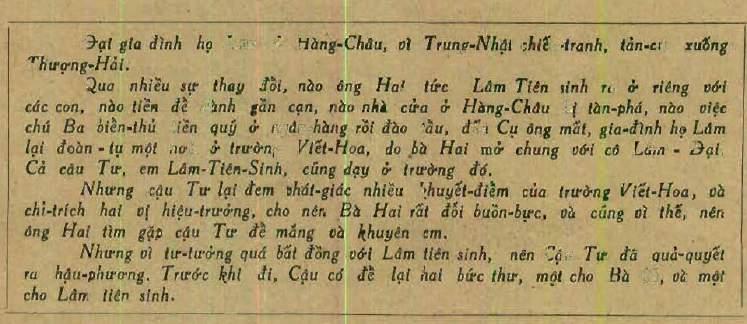 Đại gia đình họ Hàng-Châu, vì Trung-Nhật chiế tranh, tản-cư xuống
Thượng-Hải.
Qua nhiều sự thay đổi, nào ông Hai tức Lâm Tiên sinh ra ở riêng với
các con, nào tiền để dành gần cạn, nào nhà cửa ở Hàng-Châu bị tàn-phá, nào việc
chú Ba biển-thủ tiền quỹ ở ngân hàng rồi đào tẩu, đến Cụ ông mất, gia-đình họ Lâm
lại đoàn-tụ một nơi ở trường Viết-Hoa, do bà Hai mở chung với cô Lâm-Đại.
Cả cậu Tư, em Lâm-Tiên-Sinh, cũng dạy ở trường đó.
Nhưng cậu Tư lại đem phát-giác nhiều khuyết-điểm của trường Viết-Hoa, và
chỉ-trích hai vị hiệu-trưởng, cho nên Bà Hai rất đỗi buồn-bực, và cũng vì thế, nên
ông Hai tìm gặp cậu Tư để mắng và khuyên em.
Nhưng vì tư-tưởng quá bất đồng với Lâm tiên sinh, nên Cậu Tư đã quả-quyết
ra hậu-phương. Trước khi đi, Cậu có để lại hai bức thư, một cho Bà và một
cho Lâm tiên sinh.